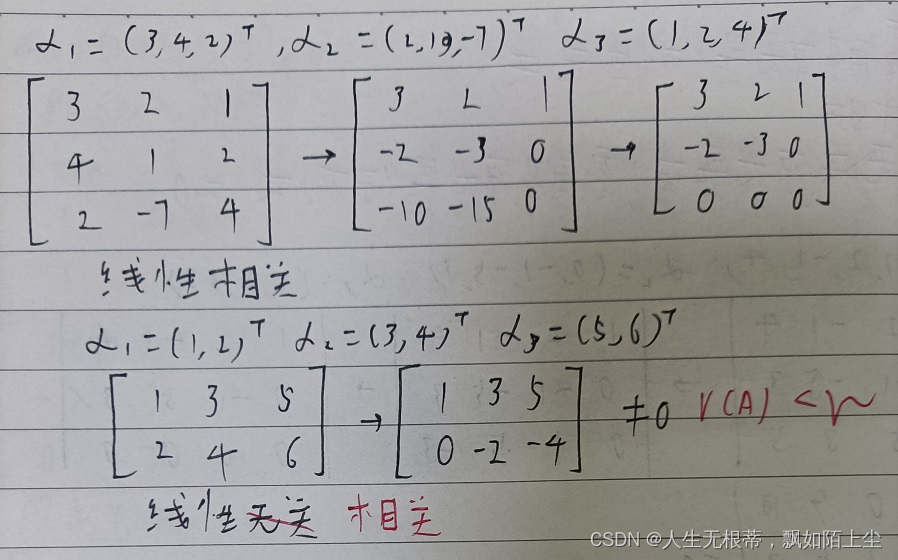 α₁ = (3,4,2)ᵀ, α₂ = (2,1,-7)ᵀ α₃ = (1,2,4)ᵀ
[3 2 1; 4 1 2; 2 -7 4] → [3 2 1; -2 -3 0; -10 -15 0] → [3 2 1; -2 -3 0; 0 0 0]
线性相关
α₁ = (1,2)ᵀ α₂ = (3,4)ᵀ α₃ = (5,6)ᵀ
[1 3 5; 2 4 6] → [1 3 5; 0 -2 -4] ≠0 r(A) < n
线性无关 相关
CSDN @人生无根蒂，飘如陌上尘